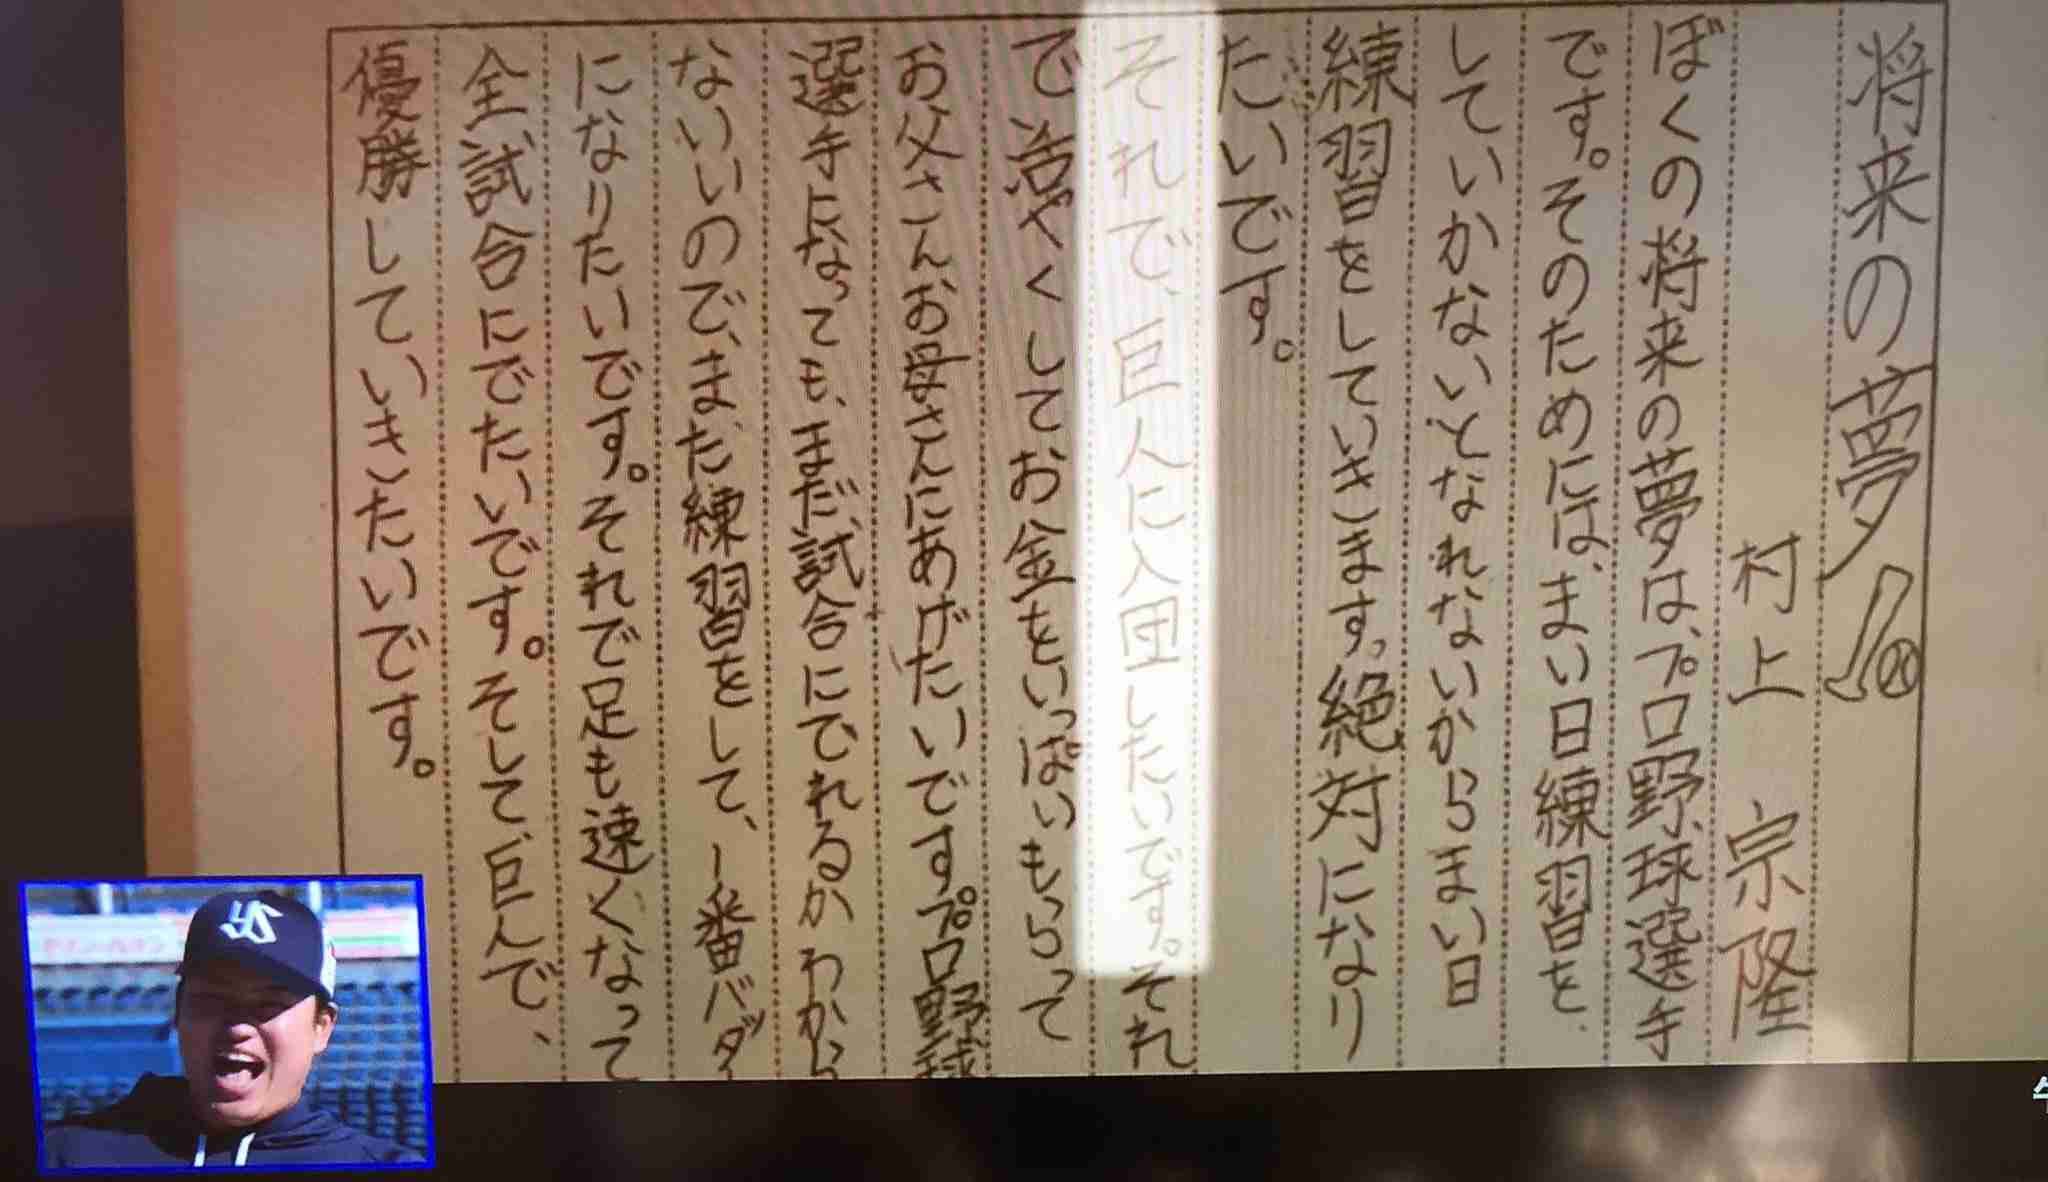 将来の夢
村上 宗隆
ぼくの将来の夢は、プロ野球選手
です。そのためには、まい日練習を
していかないとなれないからまい日
練習をしていきます。絶対になり
たいです。
それで、巨人に入団したいです。それ
で活やくしてお金をいっぱいもらって
お父さんお母さんにあげたいです。プロ野球
選手になっても、まだ試合にでれるかわから
ないいので、また練習をして、1番バダ
になりたいです。それで足も速くなって
全試合にでたいです。そして巨人で、
優勝していきたいです。
YS